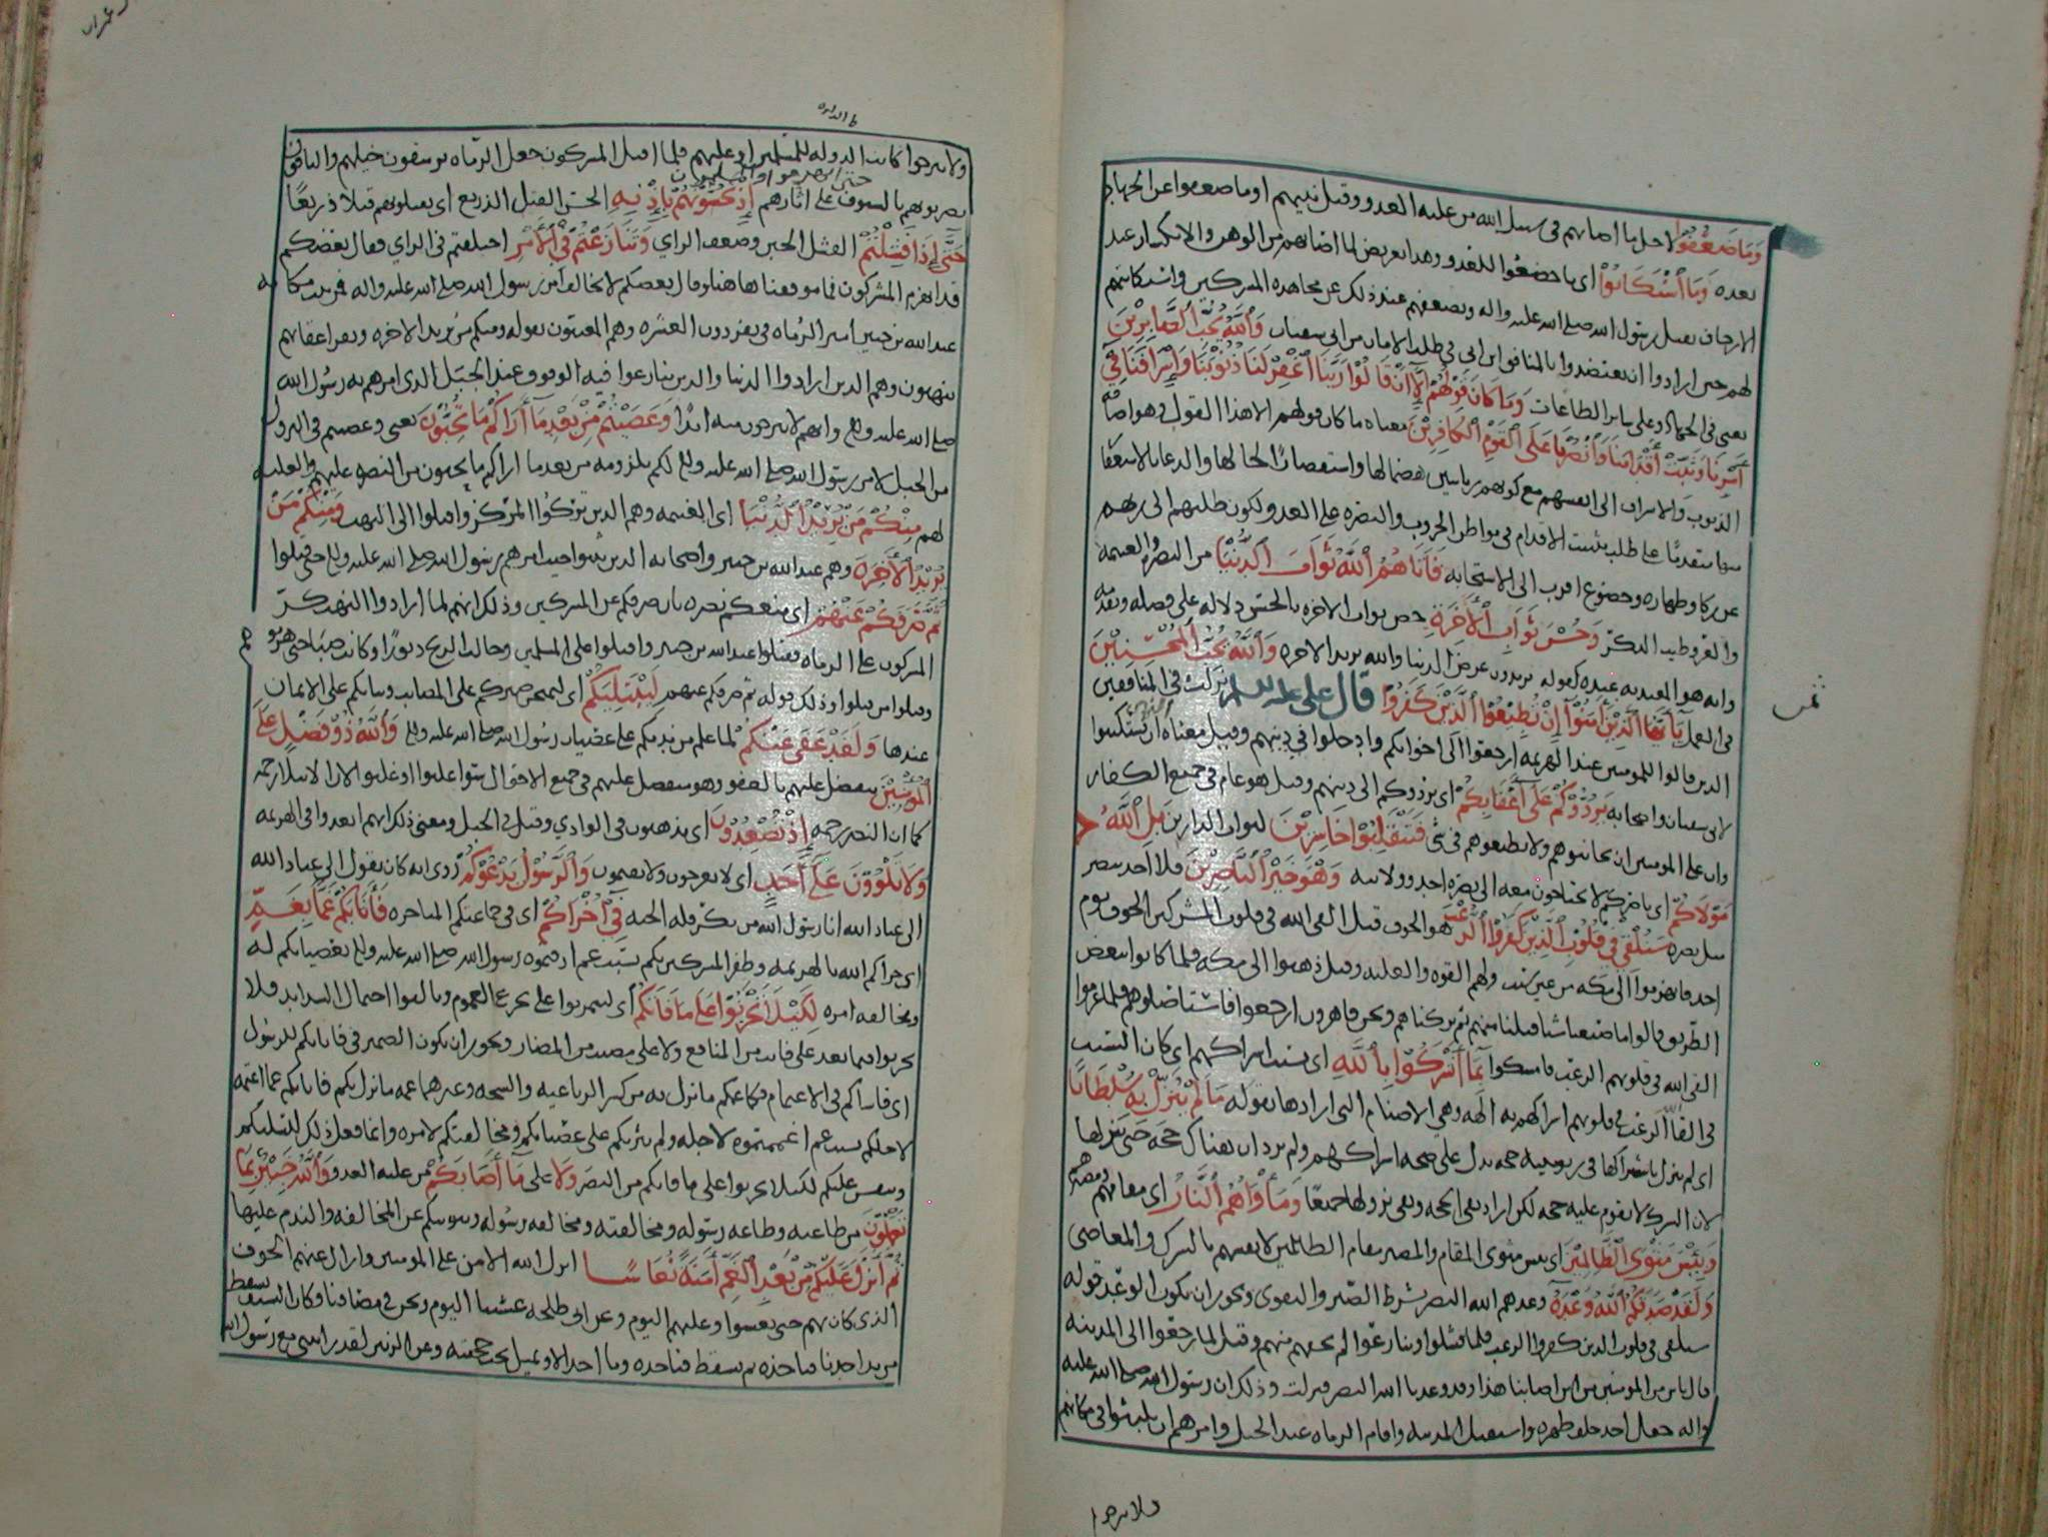 وَمَا ضَعُفُوا لاجل ما اصابهم في سبيل الله من غلبه العدو وقتل نبيهم او ما ضعفوا عن الجهاد
بعده وَمَا اسْتَكَانُوا اى ما خضعوا للعدو وهذا تعريض لما اصابهم من الوهن والانكسار عند
الارجاف بقتل رسول الله صلى الله عليه واله وبضعفهم عند ذلك عن مجاهده المشركين واستكانتهم
لهم حين ارادوا ان يعتضدوا بالمنافق ابن ابي في طلب الامان من ابي سفيان وَاللَّهُ يُحِبُّ الصَّابِرِينَ
يعني في الجهاد وعلى ساير الطاعات وَمَا كَانَ قَوْلَهُمْ إِلَّا أَنْ قَالُوا رَبَّنَا اغْفِرْ لَنَا ذُنُوبَنَا وَإِسْرَافَنَا فِي
أَمْرِنَا وَثَبِّتْ أَقْدَامَنَا وَانْصُرْنَا عَلَى الْقَوْمِ الْكَافِرِينَ معناه ما كان قولهم الا هذا القول وهو اضافه
الذنوب والاسراف الى انفسهم مع كونهم ربانيين هضما لها واستقصارا لحالها والدعا بالاستغفار
منها متقدمًا على طلب تثبيت الاقدام في مواطن الحروب والنصره على العدو لكون طلبهم الى ربهم
عن زكاء وطهاره وخضوع اقرب الى الاستجابه فَآتَاهُمُ اللَّهُ ثَوَابَ الدُّنْيَا من النصره والغنيمه
والعز وطيب الذكر وَحُسْنَ ثَوَابِ الْآخِرَةِ خص ثواب الاخره بالحسن دلاله على فضله وتقدمه
وانه هو المعتد به عنده كقوله تريدون عرض الدنيا والله يريد الاخره وَاللَّهُ يُحِبُّ الْمُحْسِنِينَ
في العمل يَا أَيُّهَا الَّذِينَ آمَنُوا إِنْ تُطِيعُوا الَّذِينَ كَفَرُوا قال على عليه السلم نزلت في المنافقين
الذين قالوا للمومنين عند الهزيمه ارجعوا الى اخوانكم وادخلوا في دينهم وقيل معناه ان تستكينوا
لابي سفيان واصحابه يَرُدُّوكُمْ عَلَى أَعْقَابِكُمْ اى يردوكم الى دينهم وقيل هو عام في جميع الكفار
وان على المومنين ان يجانبوهم ولا يطيعوهم في شي فَتَنْقَلِبُوا خَاسِرِينَ لثواب الدارين بَلِ اللَّهُ
مَوْلَاكُمْ اى ناصركم لا تحتاجون معه الى نصره احد وولايته وَهُوَ خَيْرُ النَّاصِرِينَ فلا احد ينصر
مثل نصره سَنُلْقِي فِي قُلُوبِ الَّذِينَ كَفَرُوا الرُّعْبَ هو الخوف قيل القى الله في قلوب المشركين الخوف يوم
احد فانهزموا الى مكه من غير سبب ولهم القوه والغلبه وقيل ذهبوا الى مكه فلما كانوا ببعض
الطريق قالوا ما صنعنا شيا قتلنا منهم ثم تركناهم ونحن قاهرون ارجعوا فاستاصلوهم فلما عزموا
القى الله في قلوبهم الرعب فامسكوا بِمَا أَشْرَكُوا بِاللَّهِ اى بسبب اشراكهم اى كان السبب
في القا الرعب في قلوبهم اشراكهم به الهه وهي الاصنام التي ارادها بقوله مَا لَمْ يُنَزِّلْ بِهِ سُلْطَانًا
اى لم ينزل باشراكها في ربوبيته حجه تدل على صحه اشراكهم ولم يرد ان هناك حجه حتى ينزلها
لان الشرك لا يقوم عليه حجه لكن اراد نفي الحجه ونفي نزولها جميعًا وَمَأْوَاهُمُ النَّارُ اى مقامهم ومصيرهم
وَبِئْسَ مَثْوَى الظَّالِمِينَ اى بئس مثوى المقام والمصير مقام الظالمين لانفسهم بالشرك والمعاصي
وَلَقَدْ صَدَقَكُمُ اللَّهُ وَعْدَهُ وعدهم الله النصر بشرط الصبر والتقوى ويجوز ان يكون الوعد قوله
سنلقى في قلوب الذين كفروا الرعب فلما فشلوا وتنازعوا لم يرعبهم منهم وقيل لما رجعوا الى المدينه
قال ناس من المومنين من اين اصابنا هذا وقد وعدنا الله النصر فنزلت وذلك ان رسول الله صلى الله عليه
واله جعل احد خلف ظهره واستقبل المدينه واقام الرماه عند الجبل وامرهم ان يلبثوا في مكانهم
ولا يبرحوا
ثمن
ولا يبرحوا كانت الدوله للمسلمين او عليهم فلما اقبل المشركون جعل الرماه يرشقون خيلهم والباقون
يضربونهم بالسيوف على اثارهم إِذْ تَحُسُّونَهُمْ بِإِذْنِهِ الحس القتل الذريع اى يقتلونهم قتلا ذريعًا
حَتَّى إِذَا فَشِلْتُمْ الفشل الجبن وضعف الراي وَتَنَازَعْتُمْ فِي الْأَمْرِ اختلفتم في الراي فقال بعضكم
قد انهزم المشركون فما موقفنا هاهنا وقال بعضكم لا نخالف امر رسول الله صلى الله عليه واله فمن ثبت مكانه
عبد الله بن جبير امير الرماه في نفر دون العشره وهم المعنيون بقوله ومنكم من يريد الاخره ونفر اعقابهم
ينهبون وهم الذين ارادوا الدنيا والذين تنازعوا فيه الوقوف عند الجبل الذى امرهم به رسول الله
صلى الله عليه وآله وانهم لا يبرحون منه ابدًا وَعَصَيْتُمْ مِنْ بَعْدِ مَا أَرَاكُمْ مَا تُحِبُّونَ يعني وعصيتم في النزول
من الجبل لامر رسول الله صلى الله عليه وآله لكم بلزومه من بعد ما اراكم ما تحبون من النصر عليهم والغلبه
لهم مِنْكُمْ مَنْ يُرِيدُ الدُّنْيَا اى الغنيمه وهم الذين تركوا المركز واقبلوا الى النهب وَمِنْكُمْ مَنْ
يُرِيدُ الْآخِرَةَ وهم عبد الله بن جبير واصحابه الذين ثبتوا حيث امرهم رسول الله صلى الله عليه وآله حتى قتلوا
ثُمَّ صَرَفَكُمْ عَنْهُمْ اى منعكم نصره بان صرفكم عن المشركين وذلك انهم لما ارادوا النهب كر
المشركون على الرماه فقتلوا عبد الله بن جبير واقبلوا على المسلمين وحالت الريح دبورًا وكانت صبا حتى هزموا
وقتلوا من قتلوا وذلك قوله ثم صرفكم عنهم لِيَبْتَلِيَكُمْ اى ليمتحن صبركم على المصايب وثباتكم على الايمان
عندها وَلَقَدْ عَفَا عَنْكُمْ لما علم من ندمكم على عصيان رسول الله صلى الله عليه وآله وَاللَّهُ ذُو فَضْلٍ عَلَى
الْمُؤْمِنِينَ يتفضل عليهم بالعفو وهو متفضل عليهم في جميع الاحوال سوا غلبوا او غلبوا لان الابتلا رحمه
كما ان النصر رحمه إِذْ تُصْعِدُونَ اى يذهبون في الوادي وقيل في الجبل ومعنى ذلك انهم ابعدوا في الهزيمه
وَلَا تَلْوُونَ عَلَى أَحَدٍ اى لا تعرجون ولا تقيمون وَالرَّسُولُ يَدْعُوكُمْ روى انه كان يقول الى عباد الله
الى عباد الله انا رسول الله من يكر فله الجنه فِي أُخْرَاكُمْ اى في جماعتكم المتاخره فَأَثَابَكُمْ غَمًّا بِغَمٍّ
اى جزاكم الله بالهزيمه وظفر المشركين بكم بسبب غم اذقتموه رسول الله صلى الله عليه وآله بعصيانكم له
ومخالفه امره لِكَيْلَا تَحْزَنُوا عَلَى مَا فَاتَكُمْ اى لتمرنوا على تجرع الغموم وتالفوا احتمال الشدايد فلا
تحزنوا فيما بعد على فايت من المنافع ولا على مصيب من المضار ويجوز ان يكون الضمير في فاثابكم للرسول
اى فاساكم في الاغتمام فكما غمكم ما نزل به من كسر الرباعيه والشجه وغيرهما غمه ما نزل بكم فاثابكم غما اغتمه
لاجلكم بسبب غم اغممتموه لاجله ولم يثربكم على عصيانكم ومخالفتكم لامره وانما فعل ذلك ليسليكم
وينفس عليكم لكيلا تحزنوا على ما فاتكم من النصر وَلَا على مَا أَصَابَكُمْ من غلبه العدو وَاللَّهُ خَبِيرٌ بِمَا
تَعْمَلُونَ من طاعته وطاعه رسوله ومخالفته ومخالفه رسوله وتوبتكم عن المخالفه والندم عليها
ثُمَّ أَنْزَلَ عَلَيْكُمْ مِنْ بَعْدِ الْغَمِّ أَمَنَةً نُعَاسًا انزل الله الامن على المومنين وازال عنهم الخوف
الذى كان بهم حتى نعسوا وغلبهم النوم وعن ابى طلحه غشينا النوم ونحن في مصافنا وكان السيف يسقط
من يد احدنا فياخذه ثم يسقط فياخذه وما احد الا ويميل تحت حجفته وعن الزبير لقد رايتني مع رسول الله